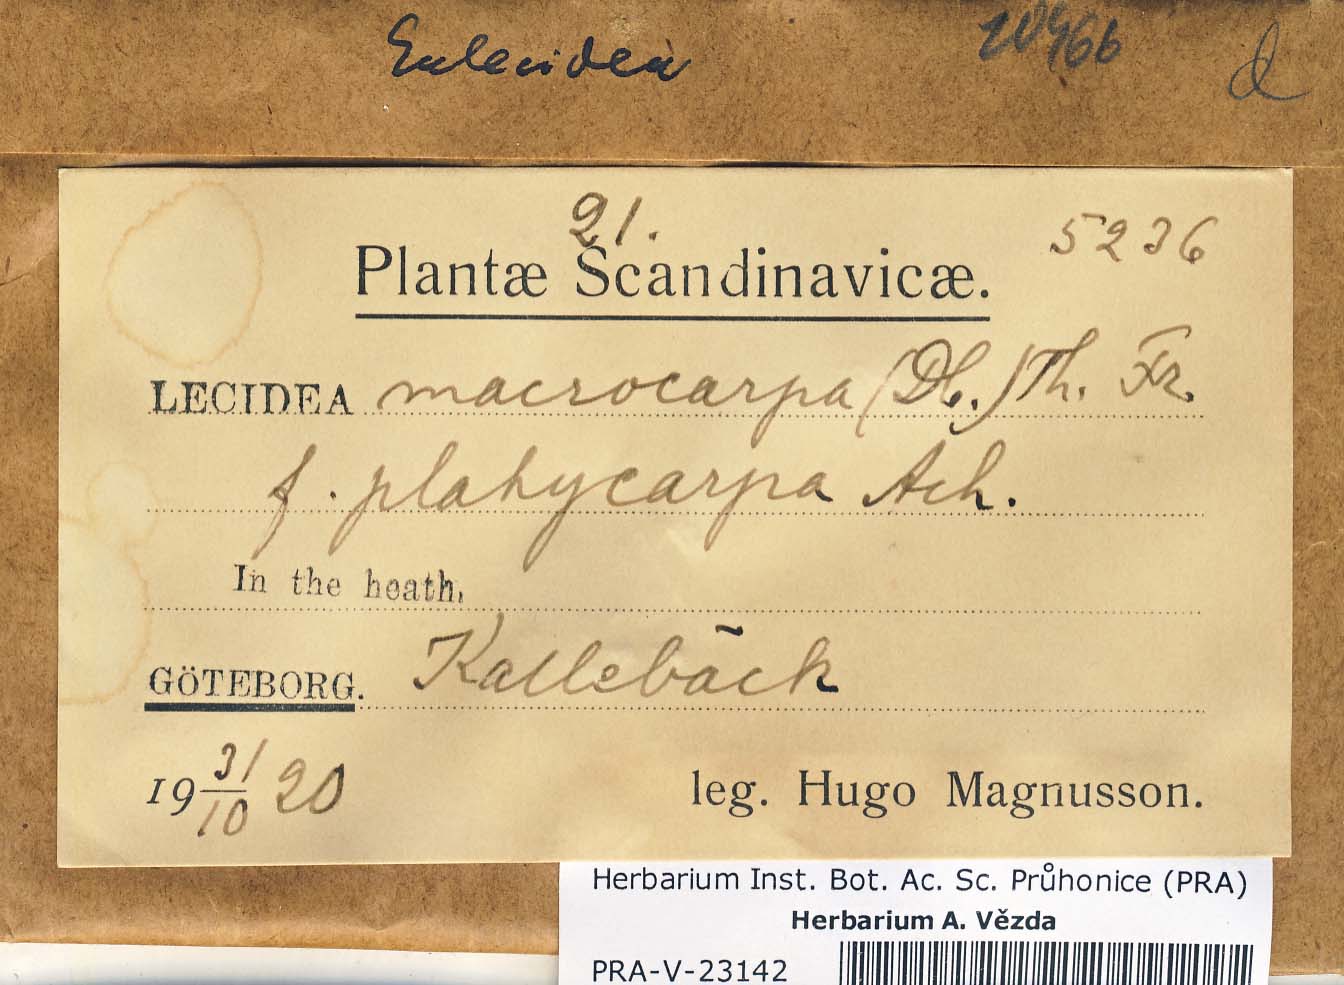 Eulecidea
20466 d
21. 5236
Plantæ Scandinavicæ.
LECIDEA macrocarpa (Db.) Th. Fr.
f. platycarpa Ach.
In the heath.
GÖTEBORG. Kallebäck
19 31/10 20 leg. Hugo Magnusson.
Herbarium Inst. Bot. Ac. Sc. Průhonice (PRA)
Herbarium A. Vězda
PRA-V-23142